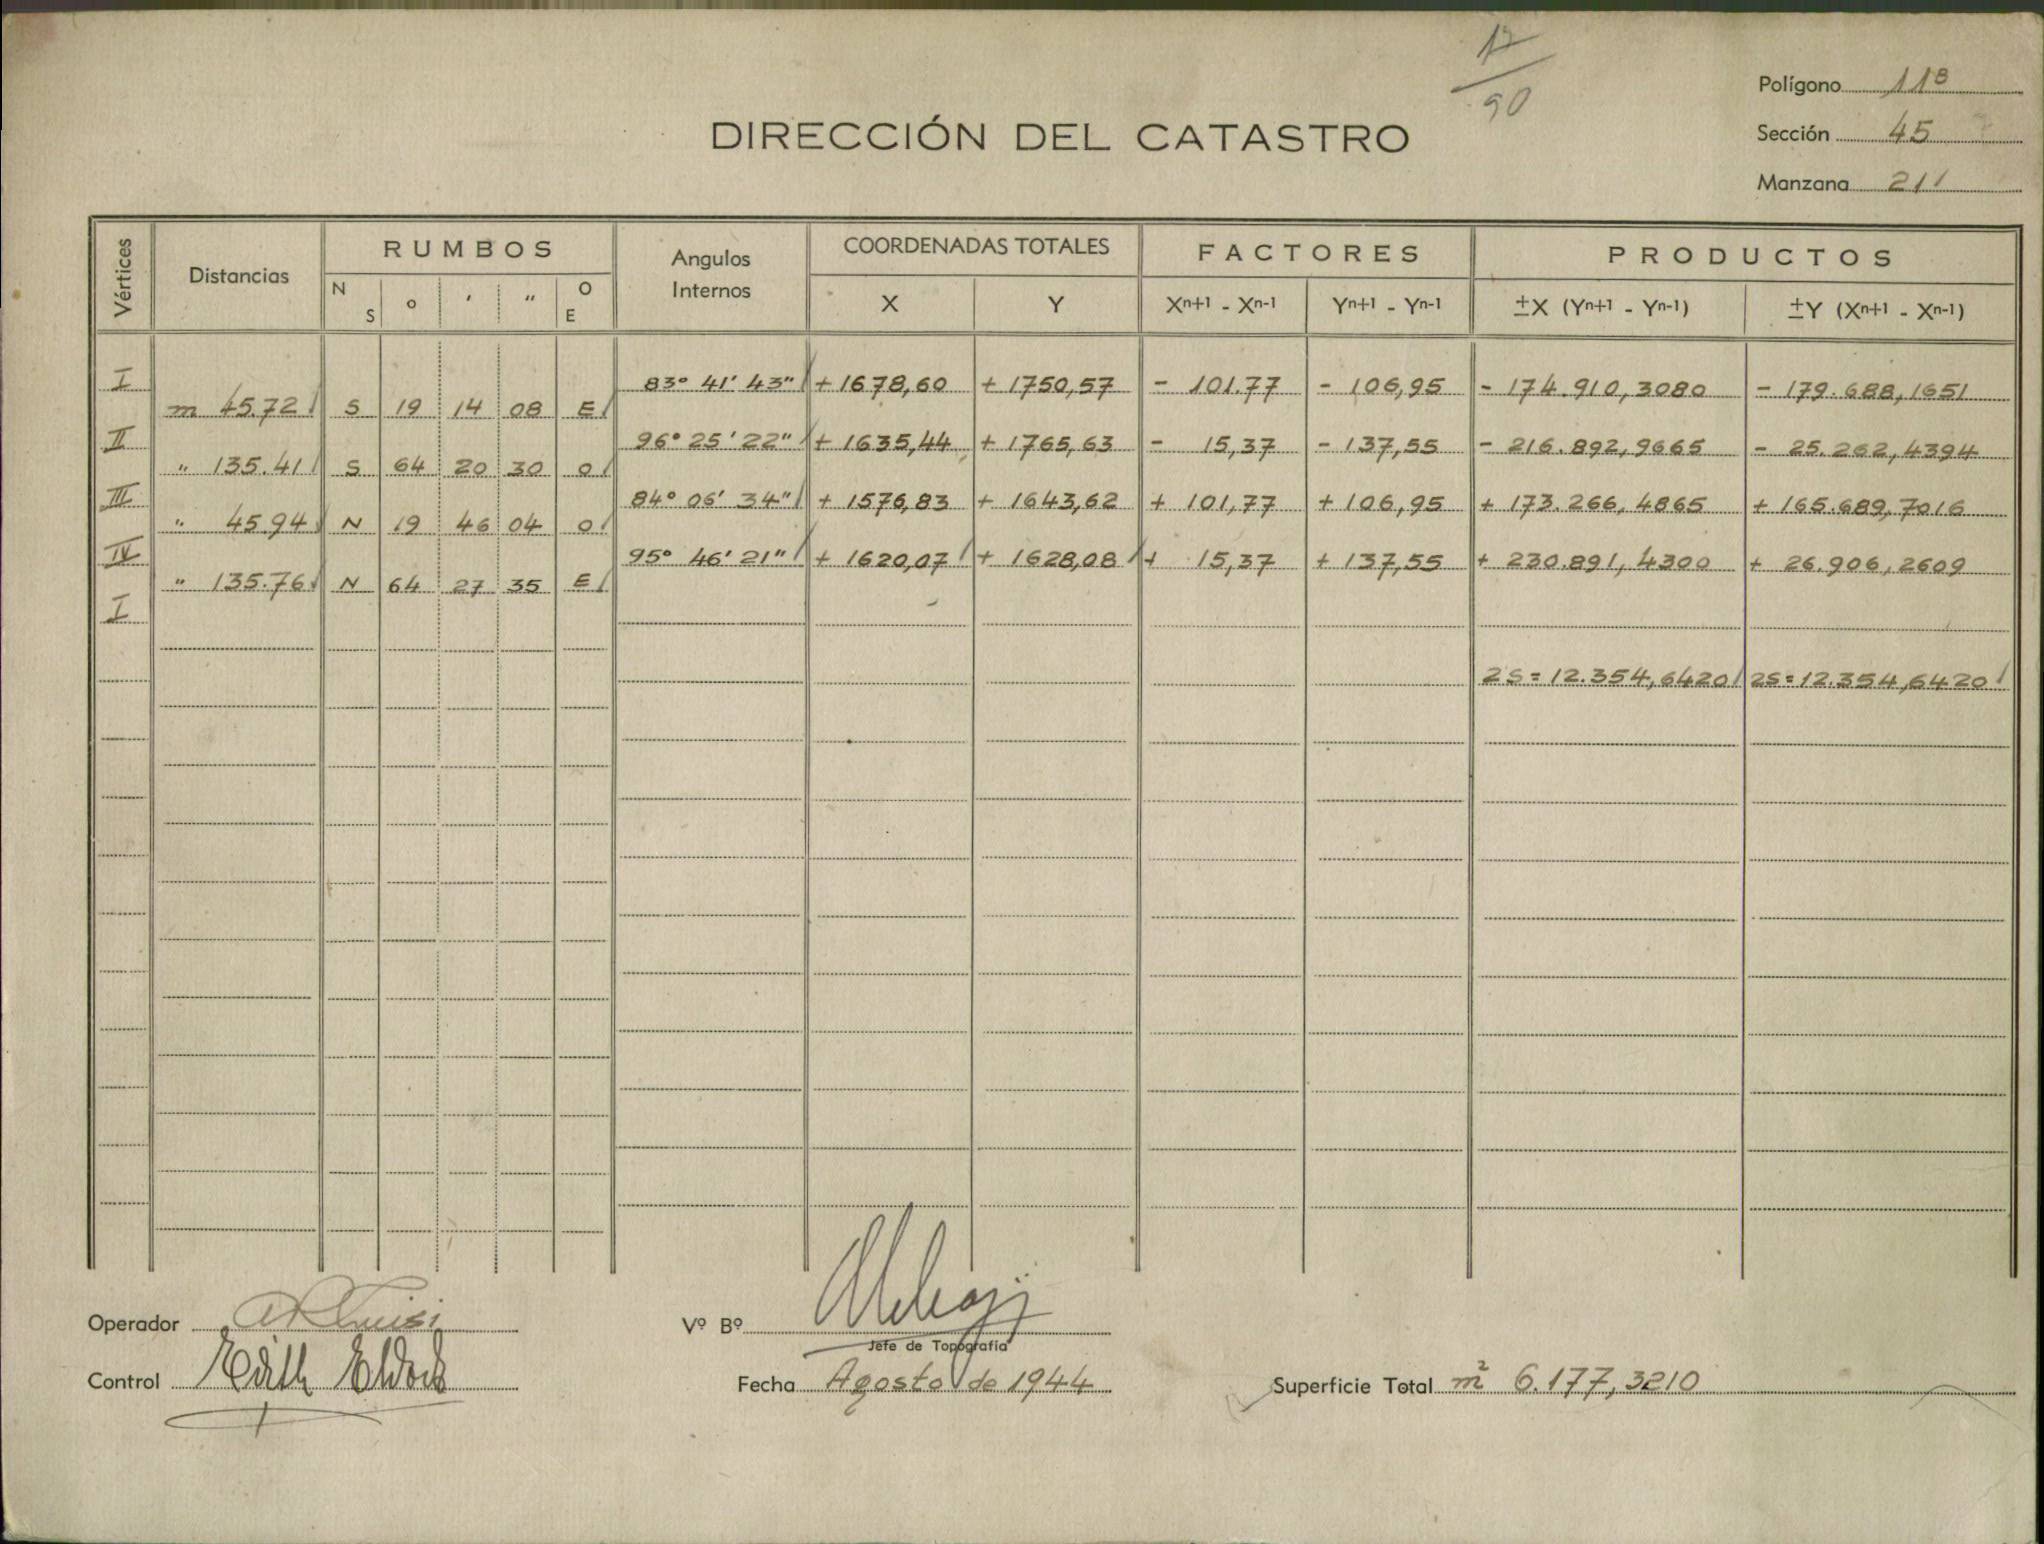 17
90
Polígono 11B
DIRECCIÓN DEL CATASTRO
Sección 45
Manzana 211
Vértices Distancias RUMBOS Angulos Internos COORDENADAS TOTALES FACTORES PRODUCTOS
N S ° ' " O E X Y Xn+1 - Xn-1 Yn+1 - Yn-1 ±X (Yn+1 - Yn-1) ±Y (Xn+1 - Xn-1)
I 83° 41' 43" + 1678,60 + 1750,57 - 101.77 - 106,95 - 174.910,3080 - 179.688,1651
m 45.72 S 19 14 08 E
II 96° 25' 22" + 1635,44 + 1765,63 - 15,37 - 137,55 - 216.892,9665 - 25.262,4394
" 135.41 S 64 20 30 O
III 84° 06' 34" + 1576,83 + 1643,62 + 101,77 + 106,95 + 173.266,4865 + 165.689,7016
" 45.94 N 19 46 04 O
IV 95° 46' 21" + 1620,07 + 1628,08 + 15,37 + 137,55 + 230.891,4300 + 26.906,2609
" 135.76 N 64 27 35 E
I
2S = 12.354,6420 2S = 12.354,6420
Operador
Vº Bº
Jefe de Topografía
Control Edith
Fecha Agosto de 1944
Superficie Total m² 6.177,3210